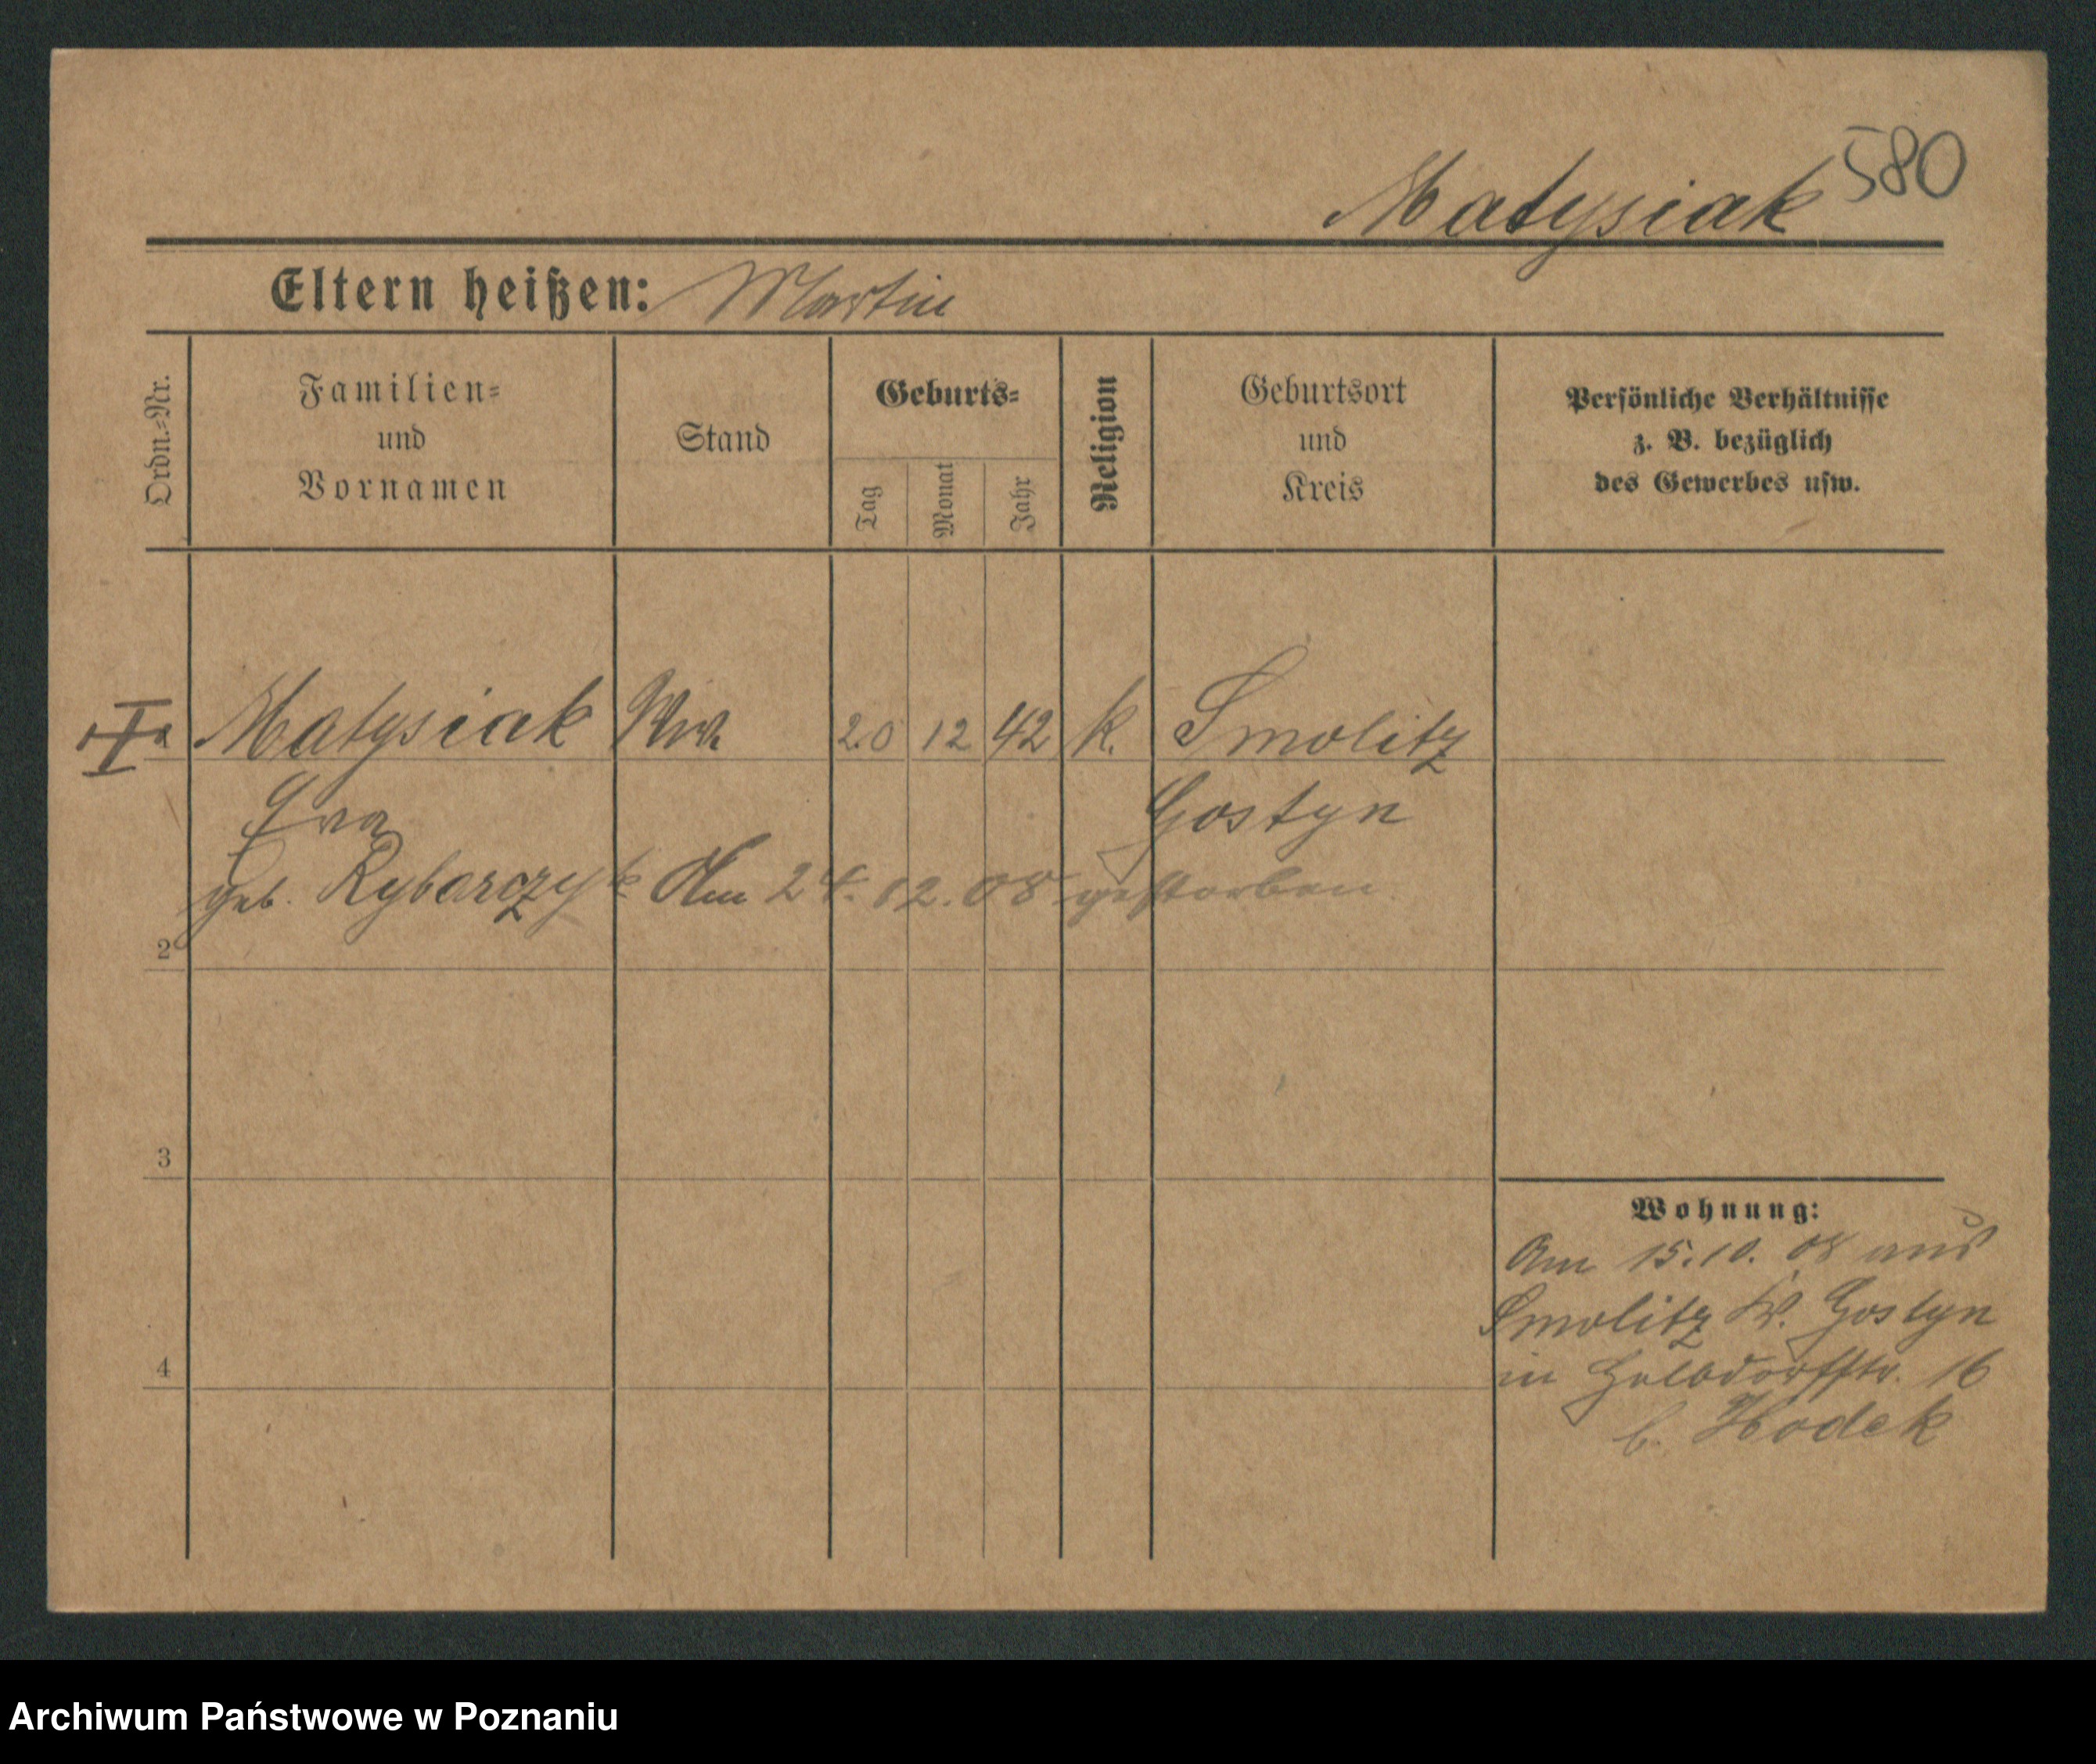 580
Matysiak
Eltern heißen: Martin
Ordn.-Nr.
Familien-
und
Vornamen
Stand
Geburts-
Tag
Monat
Jahr
Religion
Geburtsort
und
Kreis
Persönliche Verhältnisse
z. B. bezüglich
des Gewerbes usw.
Matysiak Ww. 20 12 42 k. Smolitz
Eva Gostyn
geb. Rybarczyk Am 24.12.08 gestorben.
2
3
4
Wohnung:
Am 15.10.08 aus
Smolitz Kr. Gostyn
in 16
b. Hodek
Archiwum Państwowe w Poznaniu